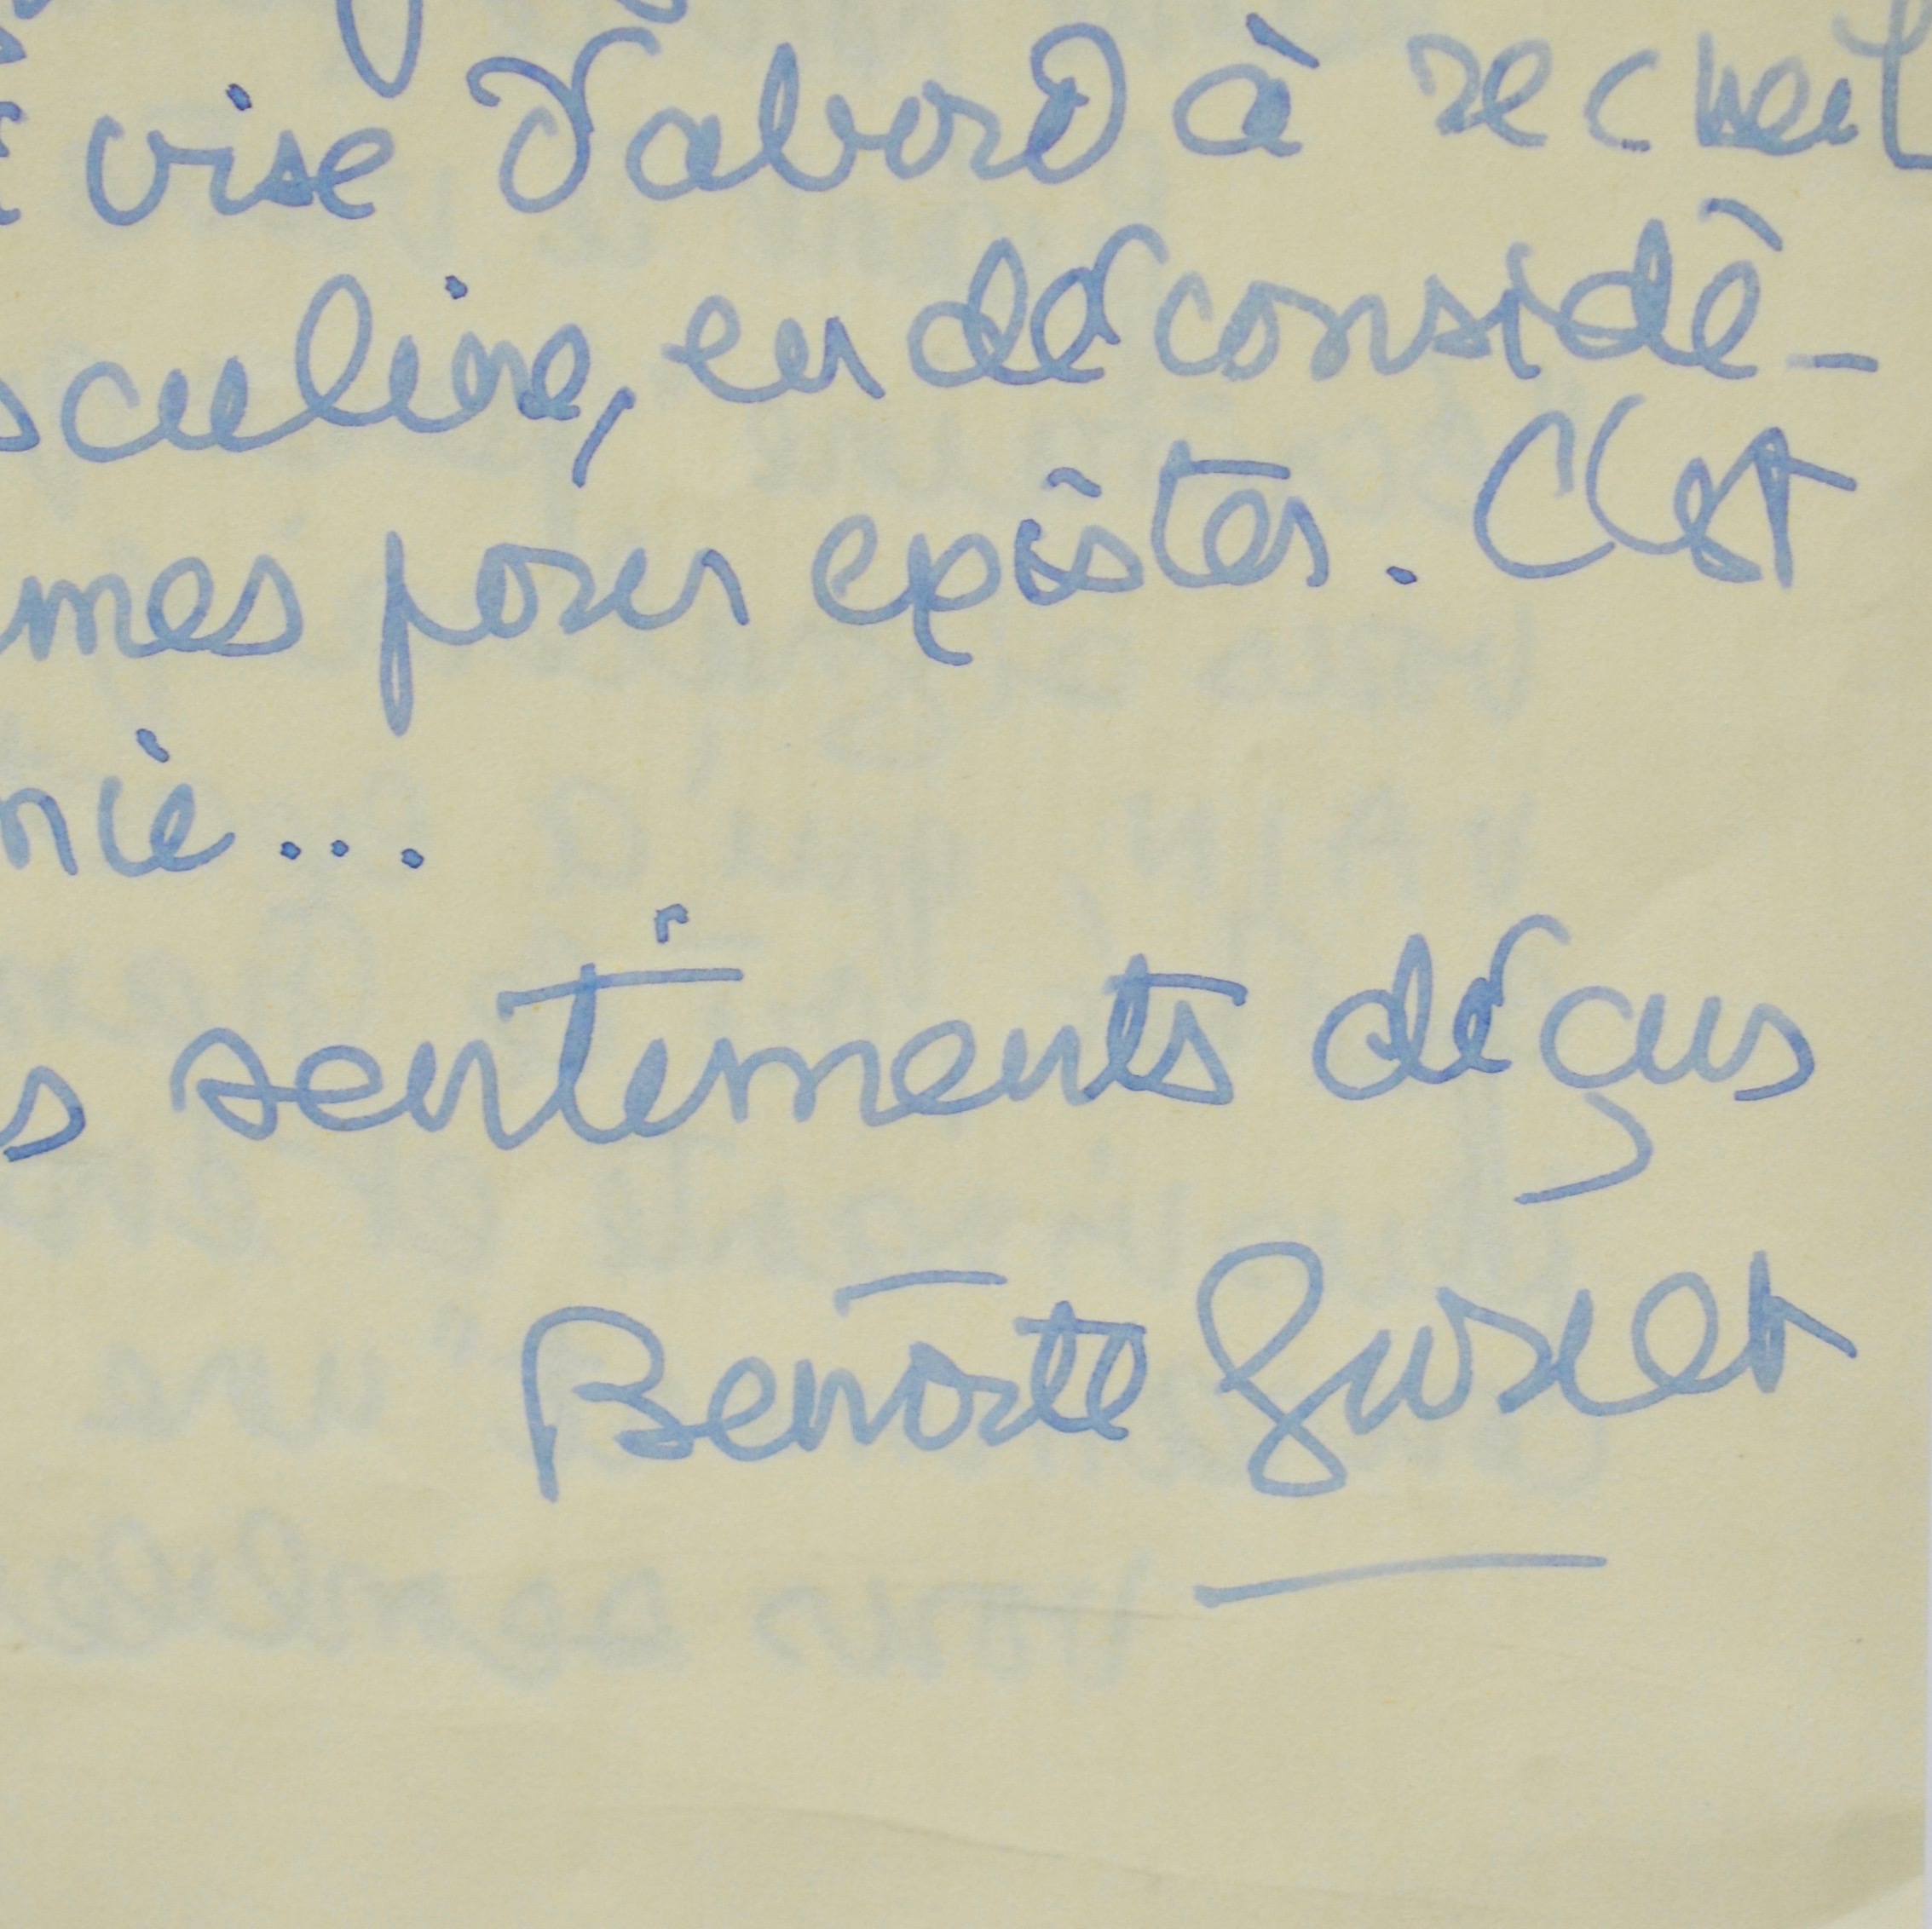 vise d'abord à recueil
sculine, en déconsidé-
mes pour exister. C'est
nie...
s sentiments déçus
Benoîte Groult